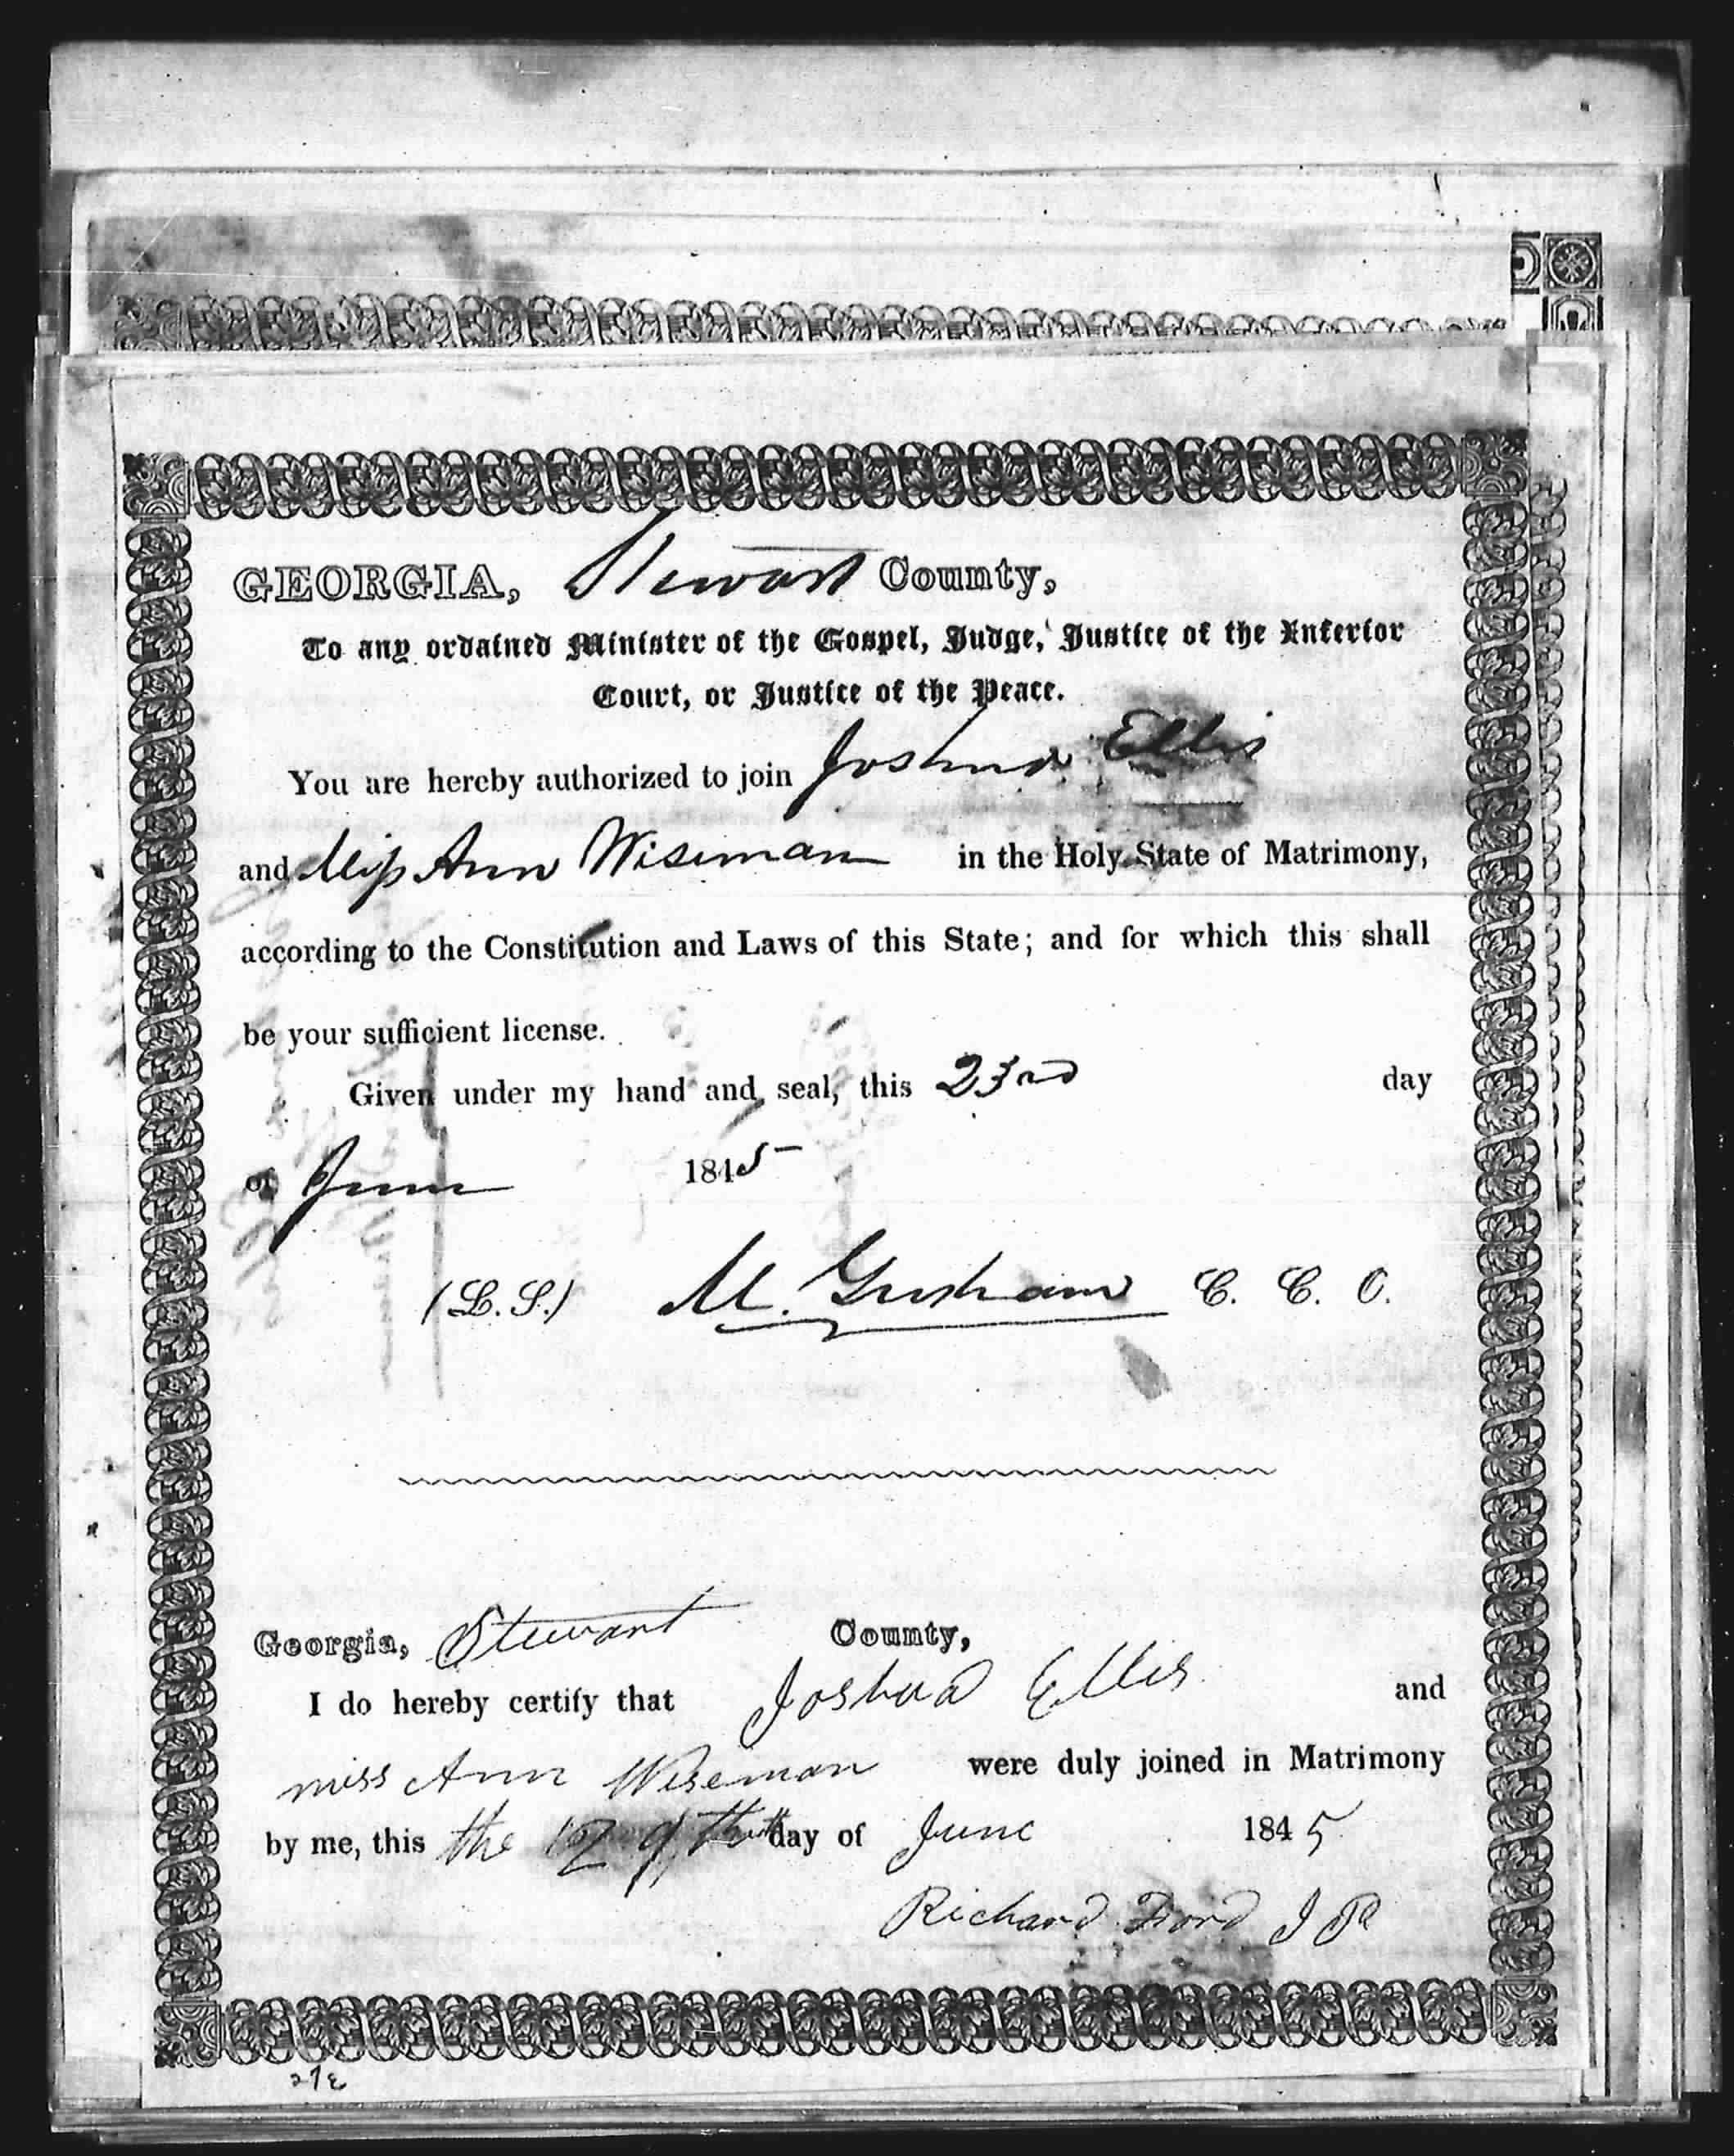 GEORGIA, Stewart County,
To any ordained Minister of the Gospel, Judge, Justice of the Inferior
Court, or Justice of the Peace.
You are hereby authorized to join Joshua Ellis
and Miss Ann Wiseman in the Holy State of Matrimony,
according to the Constitution and Laws of this State; and for which this shall
be your sufficient license.
Given under my hand and seal, this 23rd day
of June 1845
(L. S.) M. Gresham C. C. O.
Georgia, Stewart County,
I do hereby certify that Joshua Ellis and
miss Ann Wiseman were duly joined in Matrimony
by me, this the 29th day of June 1845
Richard Ford J P